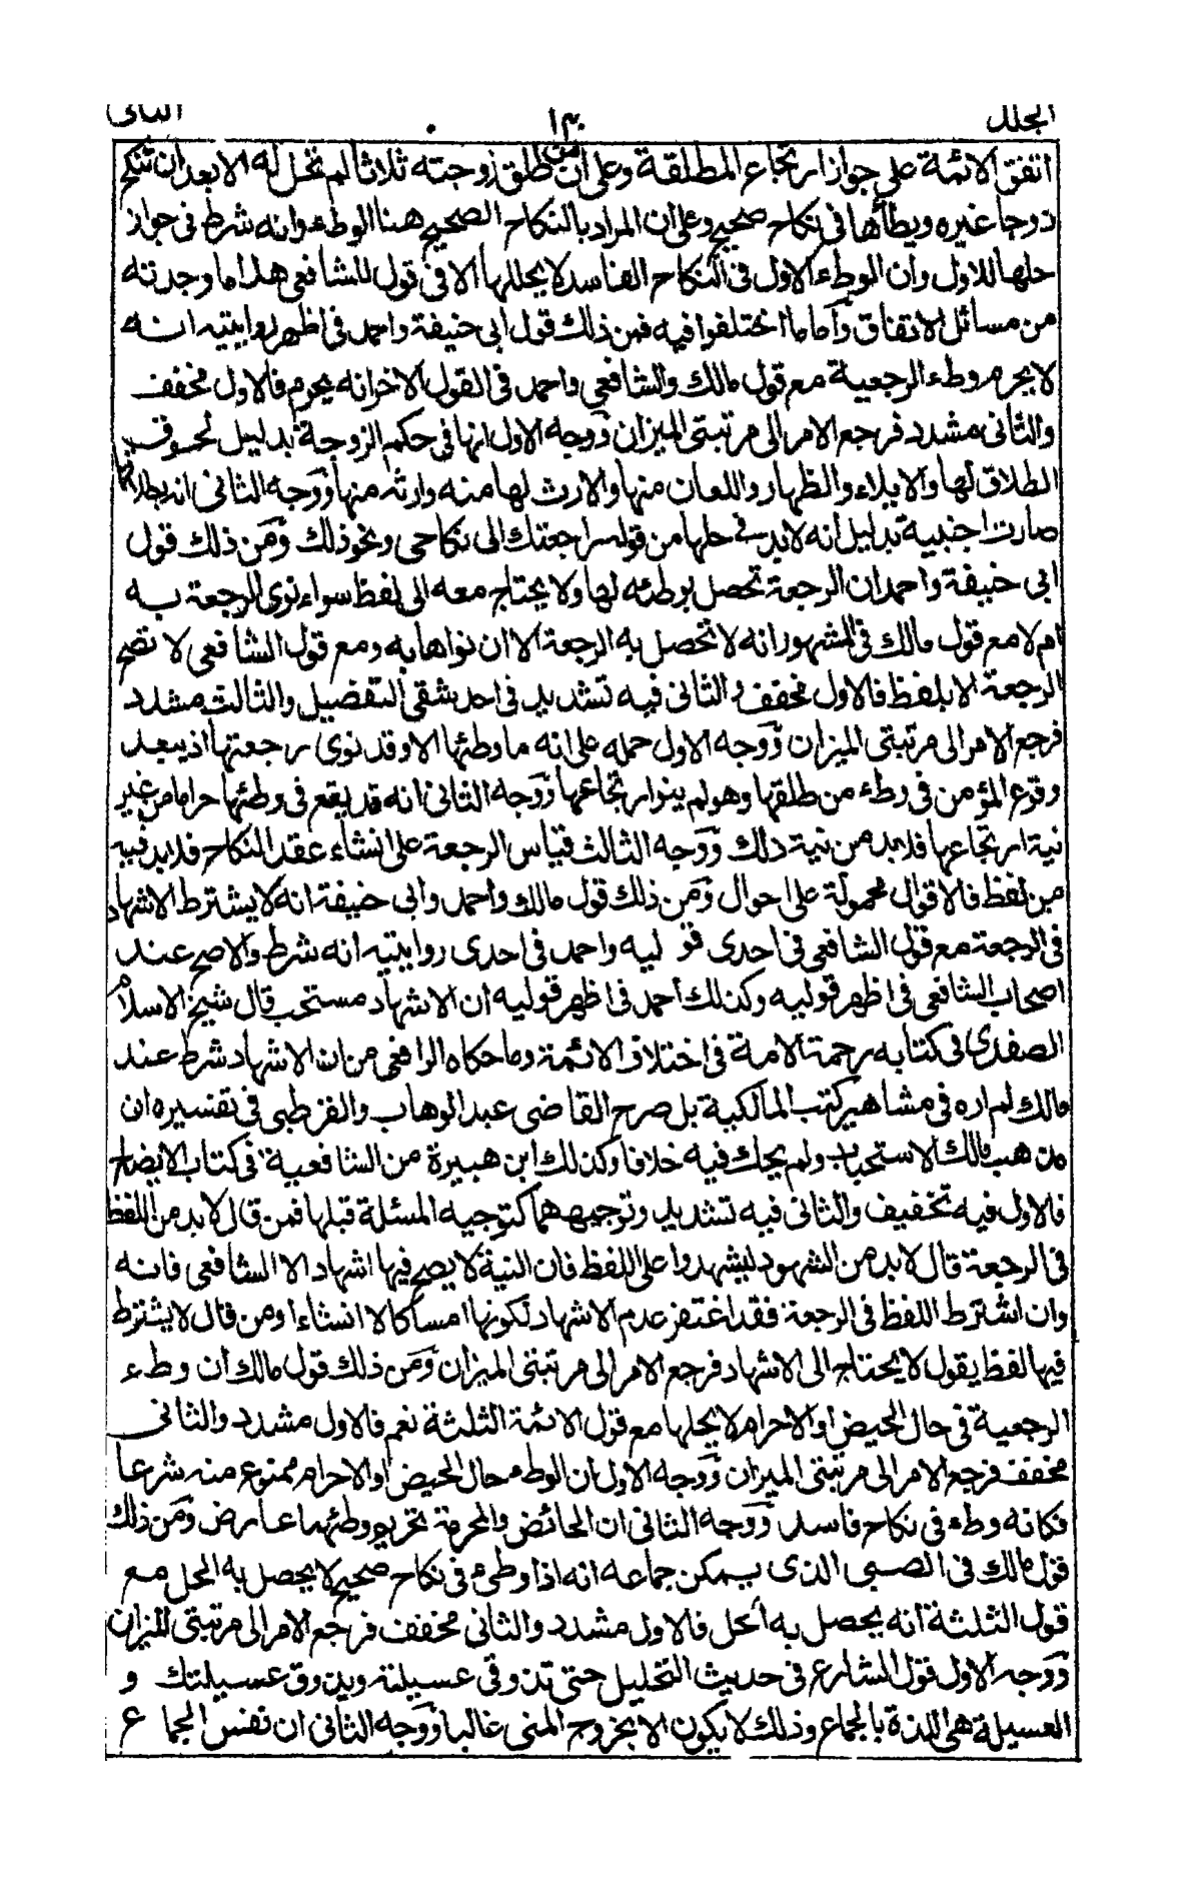 المجلد ١٣٠ الثانى
اتفق الائمة على جواز ارتجاع المطلقة وعلى ان من طلق زوجته ثلاثا لم تحل له الا بعد ان تنكح
زوجا غيره ويطأها فى نكاح صحيح وعلى ان المراد بالنكاح الصحيح هنا الوطء وانه شرط فى جواز
حلها للاول وان الوطء الاول فى النكاح الفاسد لا يحللها الا فى قول للشافعى هذا ما وجدته
من مسائل الاتفاق وأما ما اختلفوا فيه فمن ذلك قول ابى حنيفة واحمد فى اظهر روايتيه انه
لا يحرم وطء الرجعية مع قول مالك والشافعي واحمد فى القول الاخر انه يحرم فالاول مخفف
والثانى مشدد فرجع الامر الى مرتبتى الميزان ووجه الاول انها فى حكم الزوجة بدليل لحوق
الطلاق لها والايلاء والظهار واللعان منها والارث لها منه وارثه منها ووجه الثانى انه بطلاقها
صارت اجنبية بدليل انه لا بد فى حلها من قوله راجعتك الى نكاحى ونحو ذلك ومن ذلك قول
ابى حنيفة واحمد ان الرجعة تحصل بوطئه لها ولا يحتاج معه الى لفظ سواء نوى الرجعة به
ام لا مع قول مالك فى المشهور انه لا تحصل به الرجعة الا ان نواها به ومع قول الشافعى لا تصح
الرجعة الا بلفظ فالاول مخفف والثانى فيه تشديد فى احد شقى التفضيل والثالث مشدد
فرجع الامر الى مرتبتى الميزان ووجه الاول حمله على انه ما وطئها الا وقد نوى رجعتها اذ يبعد
وقوع المؤمن فى وطء من طلقها وهو لم ينو ارتجاعها ووجه الثانى انه قد يقع فى وطئها حراما من غير
نية ارتجاعها فلا بد من نية ذلك ووجه الثالث قياس الرجعة على انشاء عقد النكاح فلا بد فيه
من لفظ فالاقوال محمولة على احوال ومن ذلك قول مالك واحمد وابى حنيفة انه لا يشترط الاشهاد
فى الرجعة مع قول الشافعى فى احدى قوليه واحمد فى احدى روايتيه انه شرط والاصح عند
اصحاب الشافعى فى اظهر قوليه وكذلك أحمد فى اظهر قوليه أن الاشهاد مستحب قال شيخ الاسلام
الصفدى فى كتابه رحمة الامة فى اختلاف الائمة وما حكاه الرافعى من ان الاشهاد شرط عند
مالك لم اره فى مشاهير كتب المالكية بل صرح القاضى عبد الوهاب والقرطبى فى تفسيره ان
مذهب مالك الاستحباب ولم يحك فيه خلافا وكذلك ابن هبيرة من الشافعية فى كتاب الايضاح
فالاول فيه تخفيف والثانى فيه تشديد وتوجيههما كتوجيه المسئلة قبلها فمن قال لا بد من اللفظ
فى الرجعة قال لا بد من الشهود ليشهدوا على اللفظ فان النية لا يصح فيها اشهاد الا الشافعى فانه
وان اشترط اللفظ فى الرجعة فقد اغتفر عدم الاشهاد لكونها امساكا لا انشاءا ومن قال لا يشترط
فيها لفظ يقول لا يحتاج الى الاشهاد فرجع الامر الى مرتبتى الميزان ومن ذلك قول مالك أن وطء
الرجعية فى حال الحيض او الاحرام لا يحلها مع قول الائمة الثلثة نعم فالاول مشدد والثانى
مخفف فرجع الامر الى مرتبتى الميزان ووجه الاول ان الوطء حال الحيض او الاحرام ممنوع منه شرعا
فكانه وطء فى نكاح فاسد ووجه الثانى ان الحائض والمحرمة تحريم وطئهما عارض ومن ذلك
قول مالك فى الصبى الذى يمكن جماعه انه اذا وطىء فى نكاح صحيح لا يحصل به الحل مع
قول الثلثة انه يحصل به الحل فالاول مشدد والثانى مخفف فرجع الامر الى مرتبتى الميزان
ووجه الاول قول الشارع فى حديث التحليل حتى تذوقى عسيلته ويذوق عسيلتك و
العسيلة هى اللذة بالجماع وذلك لا يكون الا بخروج المنى غالبا ووجه الثانى ان نفس الجماع